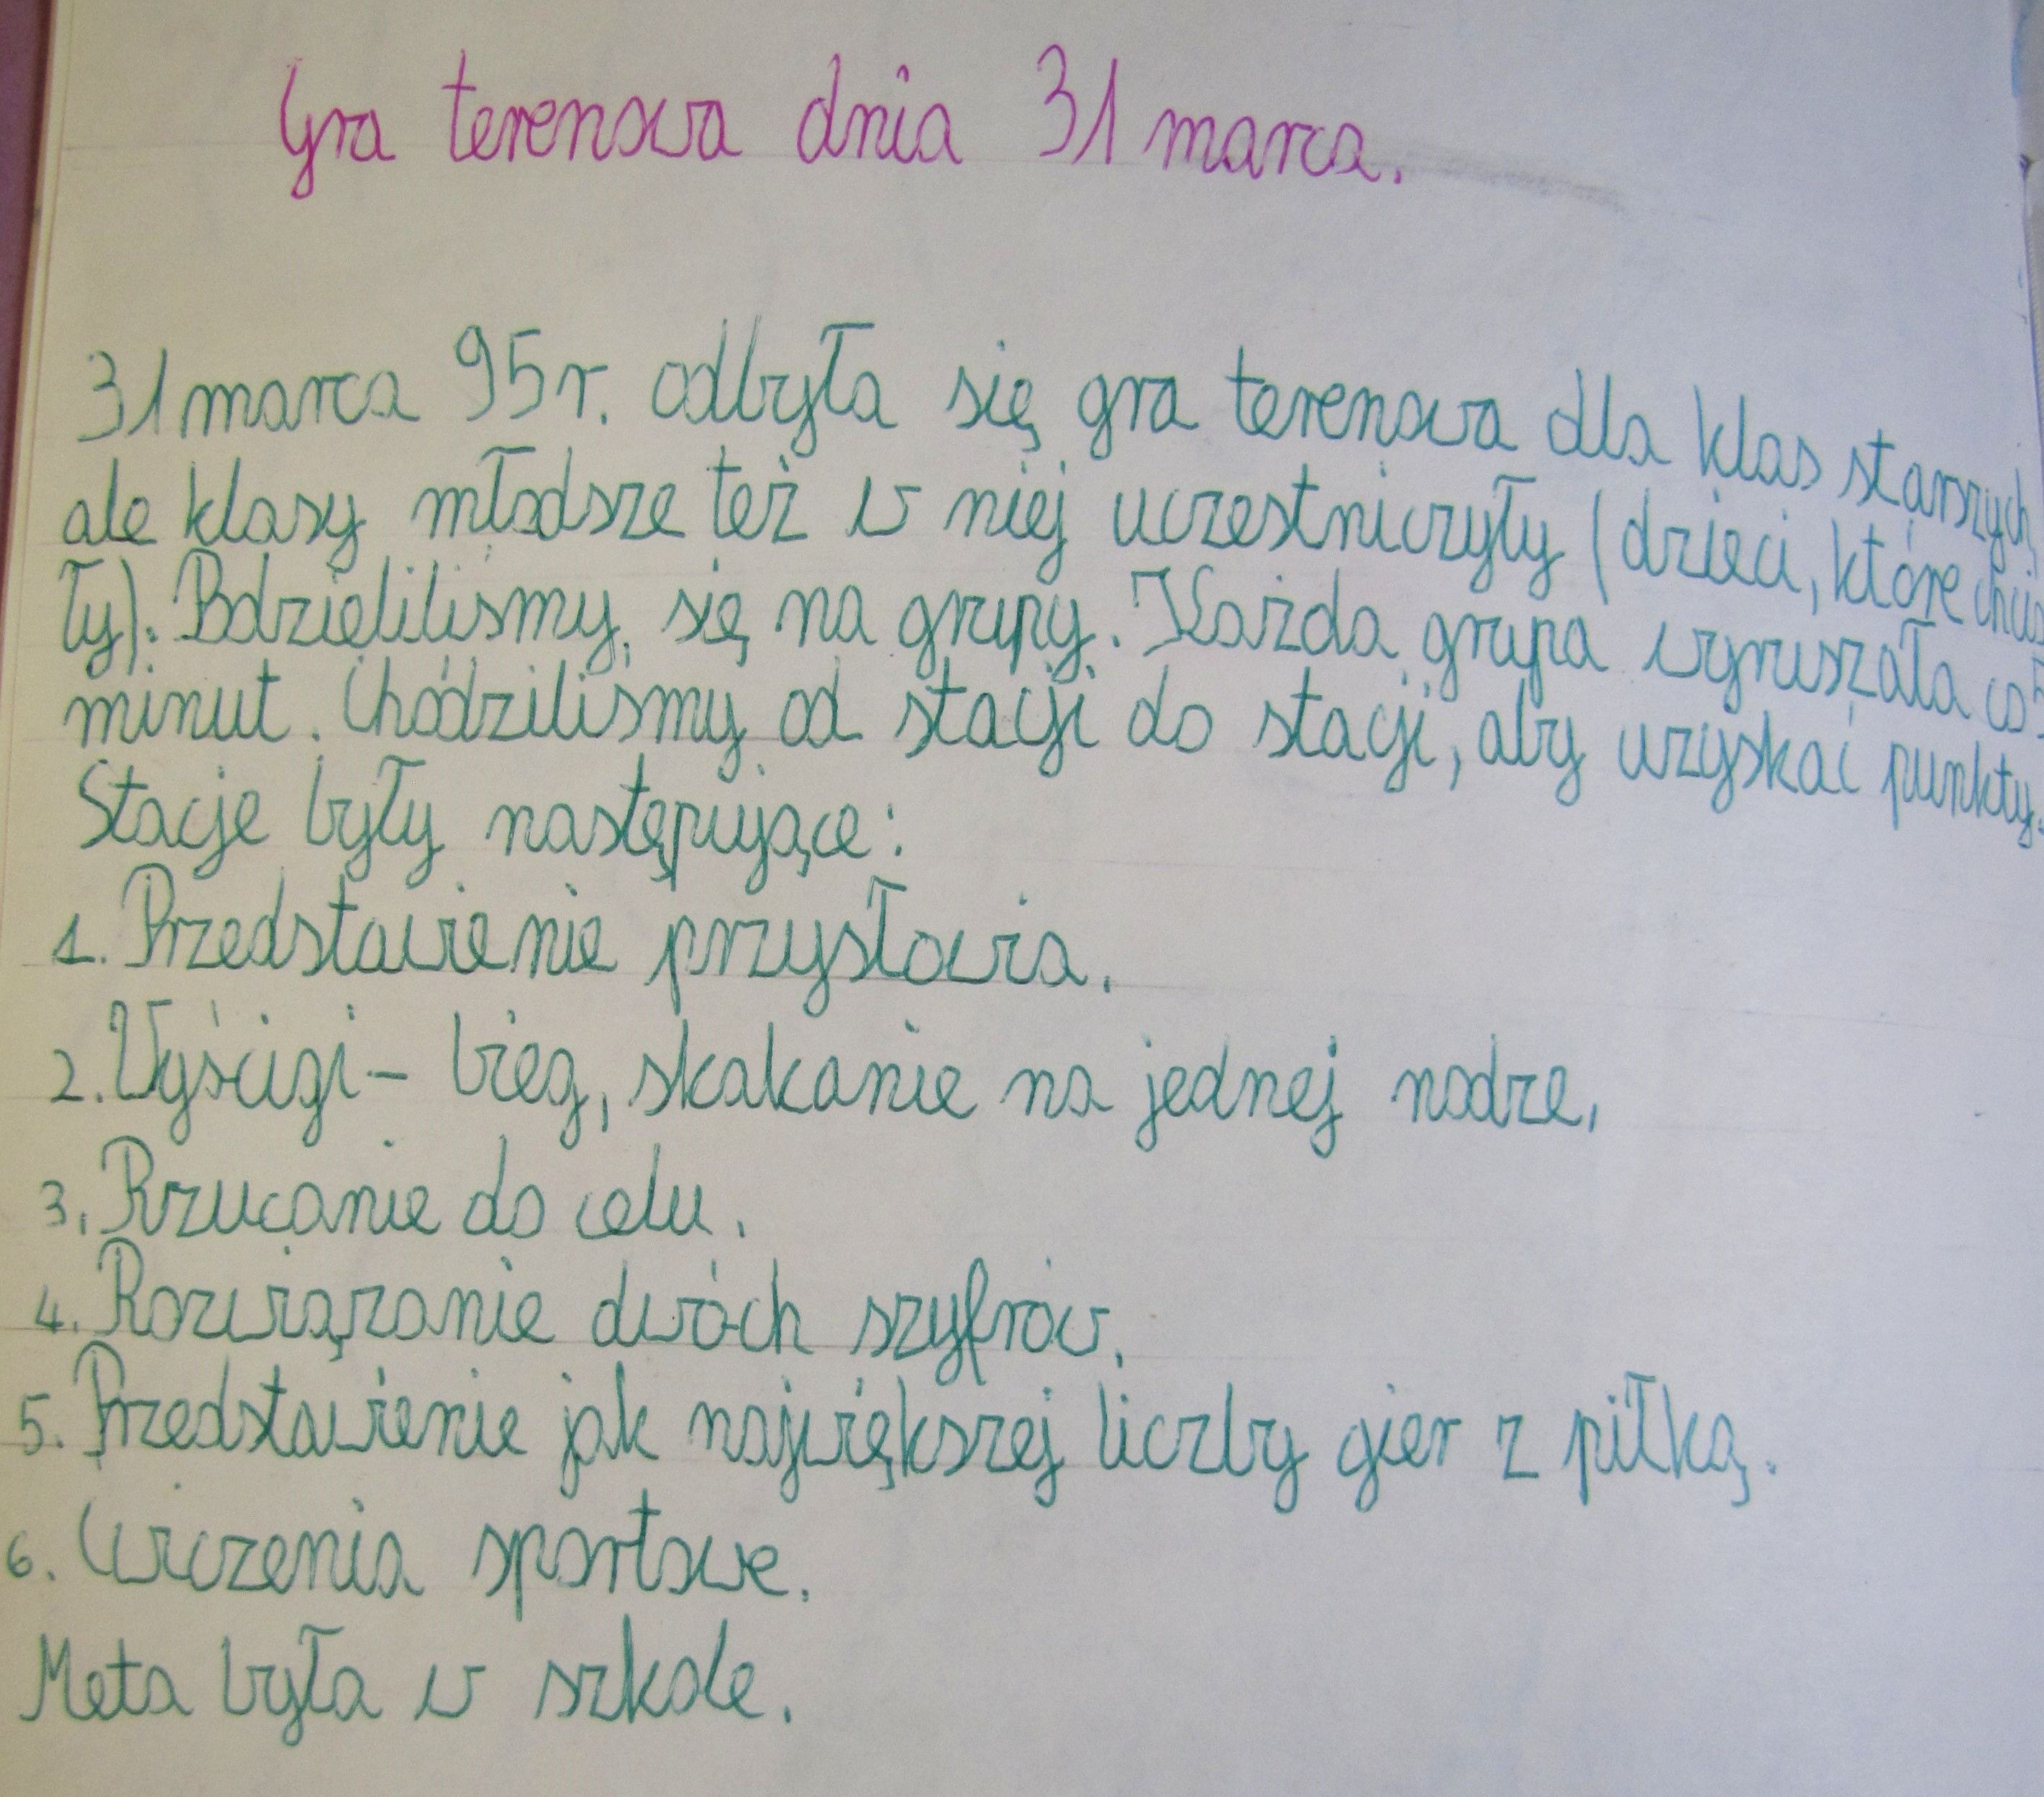 Gra terenowa dnia 31 marca.
31 marca 95r. odbyła się gra terenowa dla klas starszych,
ale klasy młodsze też w niej uczestniczyły (dzieci, które chcia
ły). Podzieliliśmy się na grupy. Każda grupa wyruszała co 5
minut. Chodziliśmy od stacji do stacji, aby uzyskać punkty.
Stacje były następujące:
1. Przedstawienie przysłowia.
2. Wyścigi – bieg, skakanie na jednej nodze,
3. Rzucanie do celu.
4. Rozwiązanie dwóch szyfrów.
5. Przedstawienie jak największej liczby gier z piłką.
6. Ćwiczenia sportowe.
Meta była w szkole.